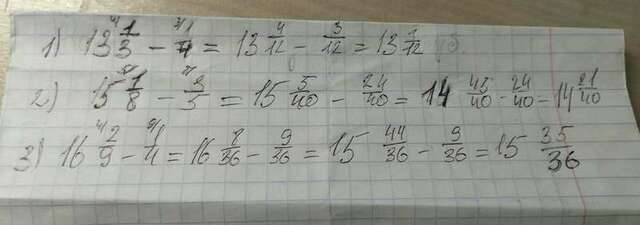 1) 13 1/3 - 1/4 = 13 4/12 - 3/12 = 13 1/12
2) 15 1/8 - 3/5 = 15 5/40 - 24/40 = 14 45/40 - 24/40 = 14 21/40
3) 16 2/9 - 1/4 = 16 8/36 - 9/36 = 15 44/36 - 9/36 = 15 35/36